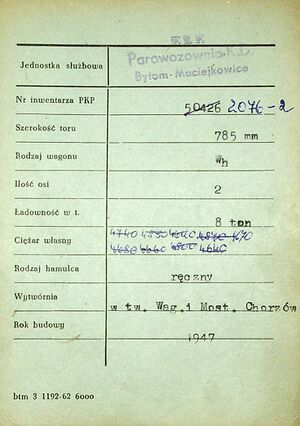 P.K.P.
Parowozownia K.D.
Bytom-Maciejkowice
Jednostka służbowa
Nr inwentarza PKP 50426 2076-2
Szerokość toru 785 mm
Rodzaj wagonu Wh
Ilość osi 2
Ładowność w t. 8 ton
Ciężar własny 4740
4640
Rodzaj hamulca ręczny
Wytwórnia w tw. Wag.i Most. Chorzów
Rok budowy 1947
btm 3 1192-62 6000